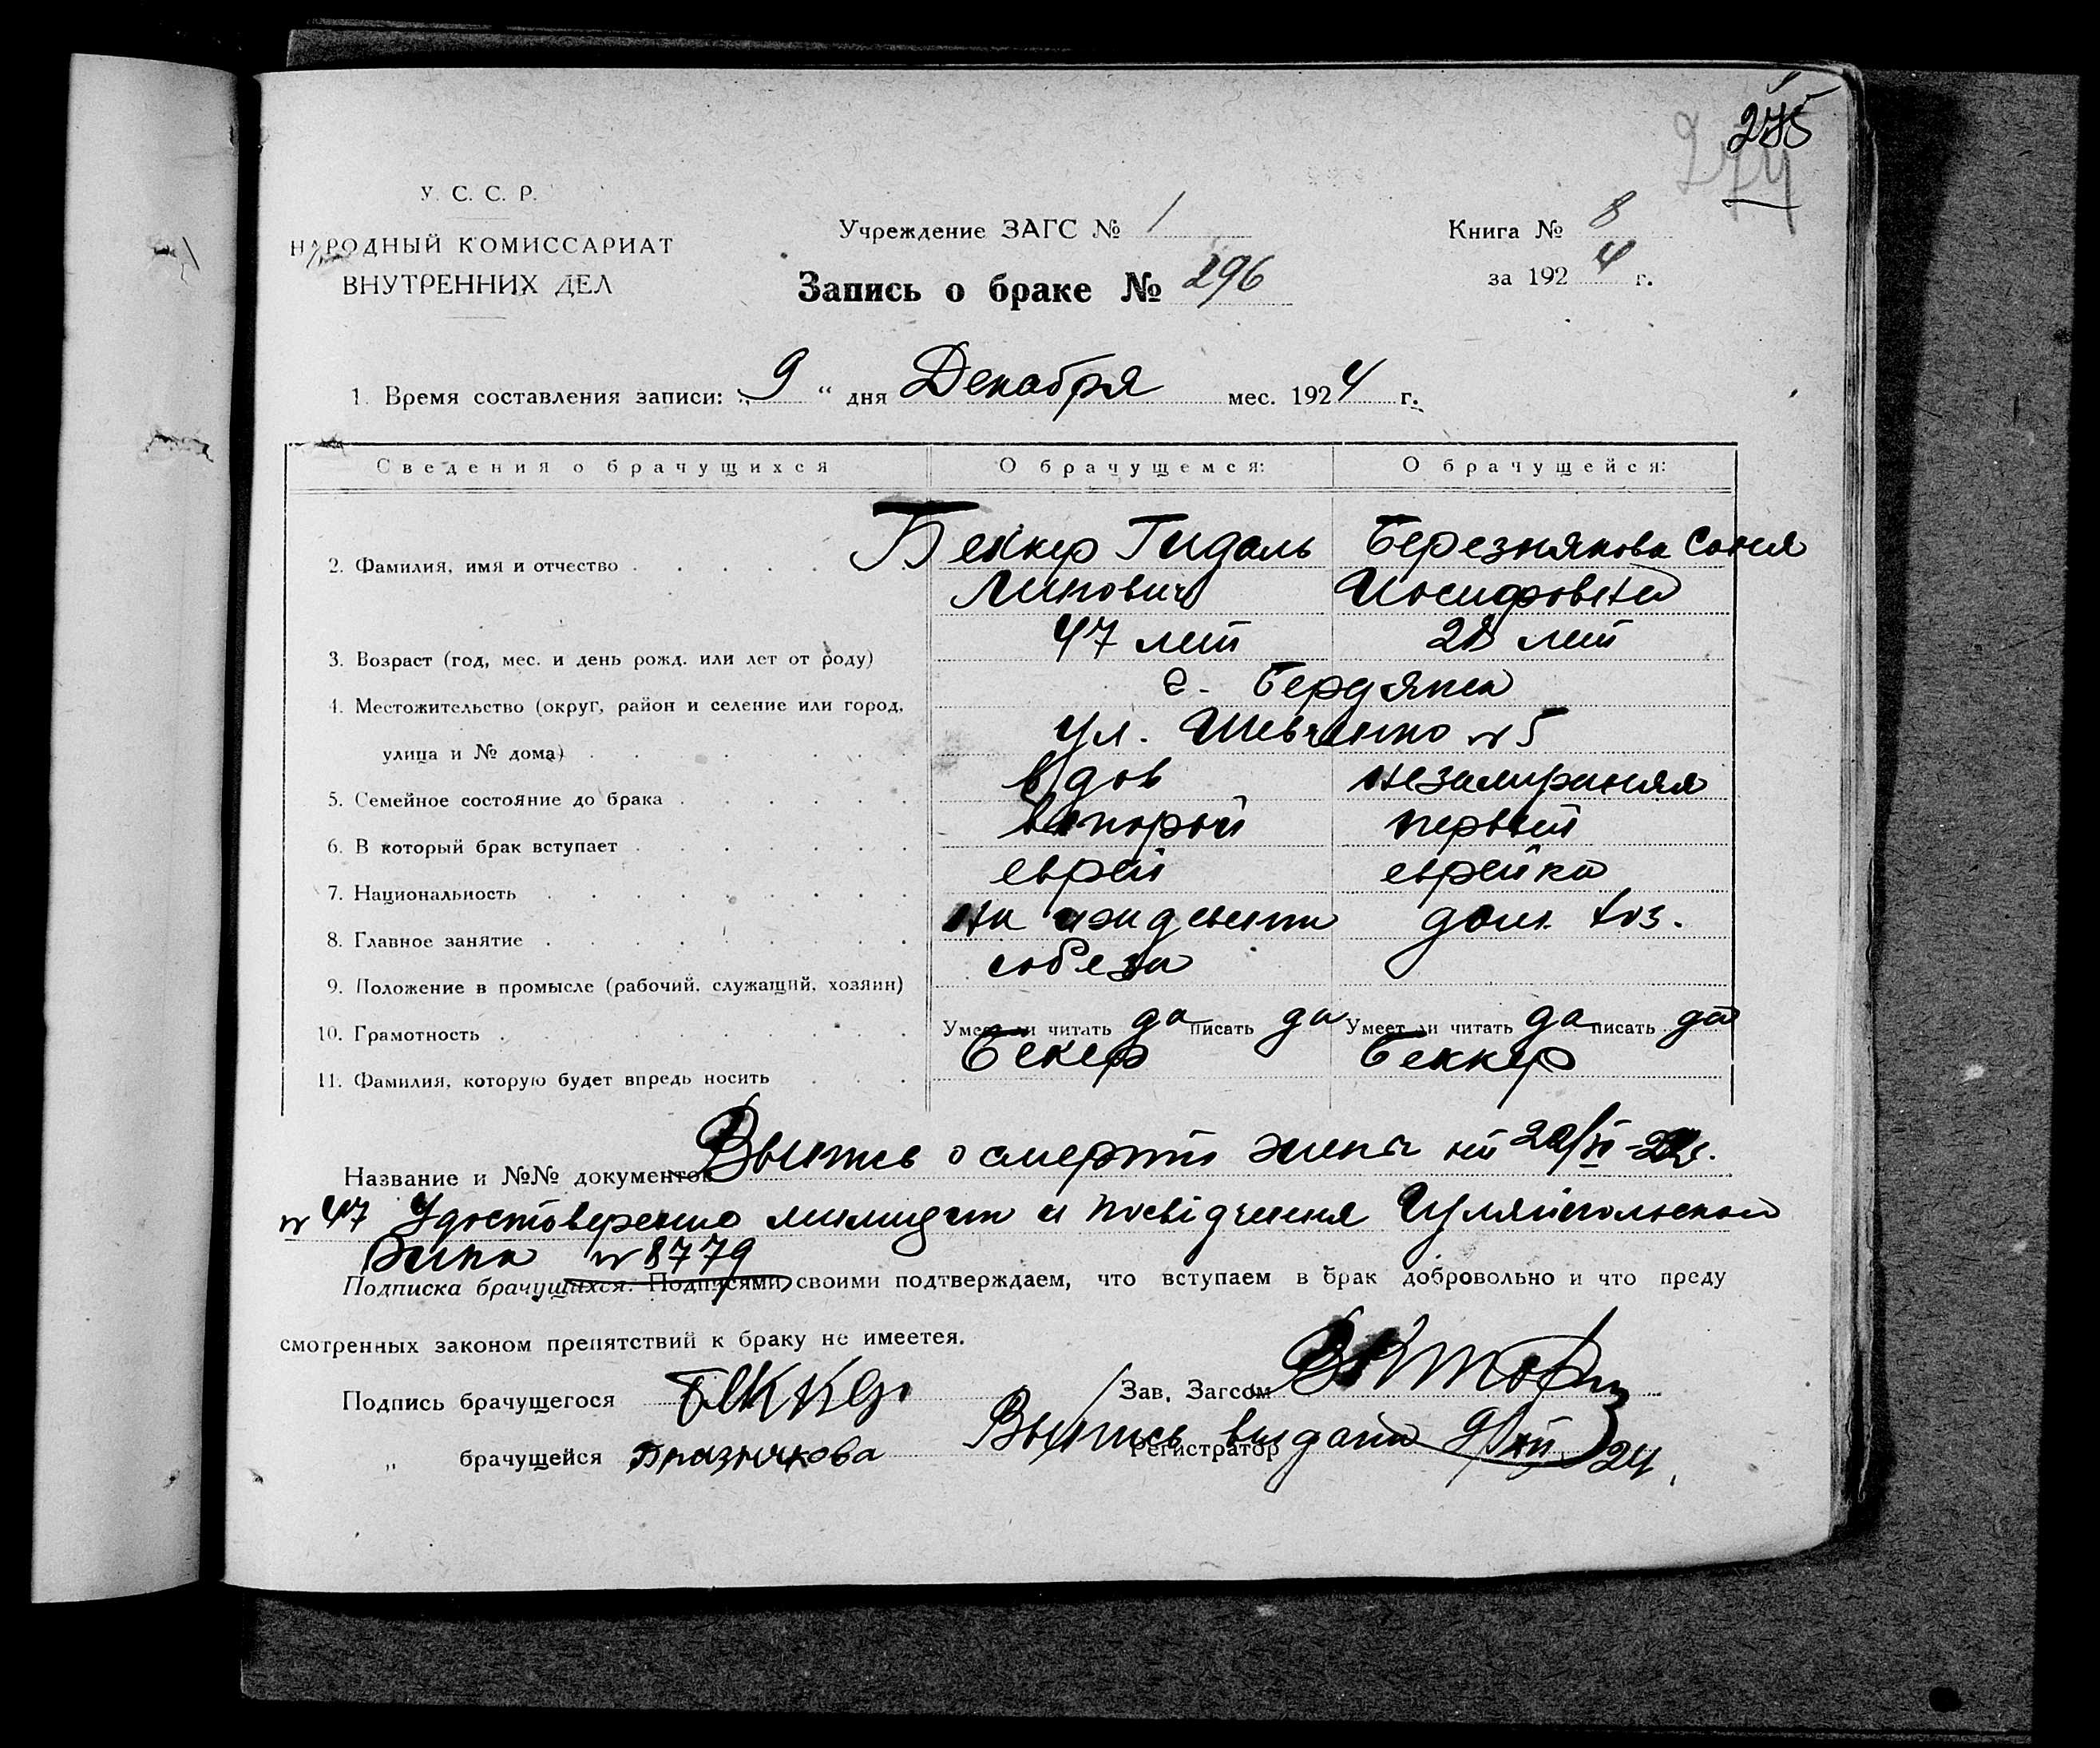 275
274
У. С. С. Р.
НАРОДНЫЙ КОМИССАРИАТ
ВНУТРЕННИХ ДЕЛ
Учреждение ЗАГС № 1
Запись о браке № 296
Книга № 8
за 1924 г.
1. Время составления записи: „9“ дня Декабря мес. 1924 г.
Сведения о брачущихся О брачущемся: О брачущейся:
2. Фамилия, имя и отчество Беккер Гидаль Березнякова Соня
Липович Иосифовна
3. Возраст (год, мес. и день рожд. или лет от роду) 47 лет 28 лет
4. Местожительство (округ, район и селение или город, г. Бердянск
улица и № дома) ул. Шевченко № 5
5. Семейное состояние до брака вдов незамужняя
6. В который брак вступает второй первый
7. Национальность еврей еврейка
8. Главное занятие на иждивении дом. хоз.
9. Положение в промысле (рабочий, служащий, хозяин) собеза
10. Грамотность Умеет ли читать да писать да Умеет ли читать да писать да
11. Фамилия, которую будет впредь носить Бекер Беккер
Название и №№ документов Выпись о смерти жены от
№ 47 Удостоверение милиции и посвідчення Гуляйпольского
№ 8779
Подписка брачущихся. Подписями своими подтверждаем, что вступаем в брак добровольно и что преду
смотренных законом препятствий к браку не имеется.
Подпись брачущегося Беккер Зав. Загсом
„ брачущейся Бразнякова Регистратор
Выпись выдана 9/XII 24.